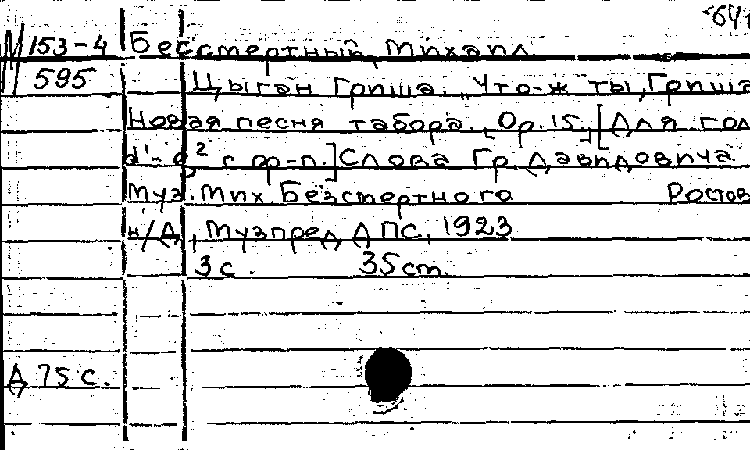 641
М 153-4 Бессмертный, Михаил
595 Цыган Гриша. "Что-ж ты, Гриша
Новая песня табора. Ор. 15. [Для гол
d¹-g² с ф-п.] Слова Гр. Давидовича
Муз. Мих. Безсмертного Ростов
н/Д, Музпред ДПС, 1923
3 с. 35 cm.
Д 75 с.